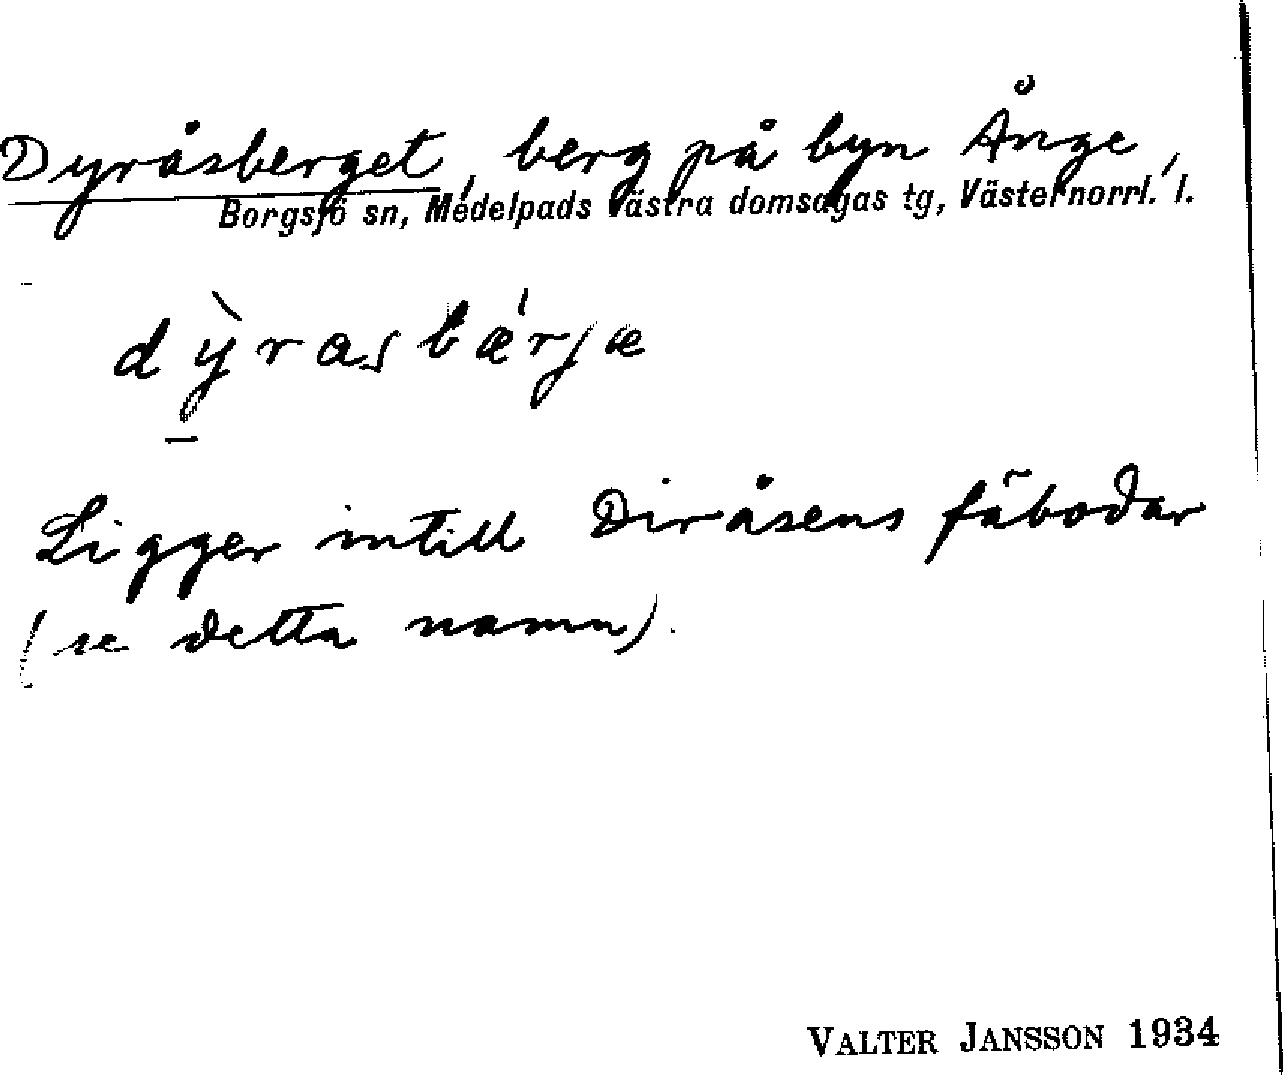 Dyråsberget, berg på byn Ånge,
Borgsjö sn, Medelpads västra domsagas tg, Västernorrl. l.
dỳrasbǽrjæ
Ligger intill Diråsens fäbodar
(se detta namn).
VALTER JANSSON 1934